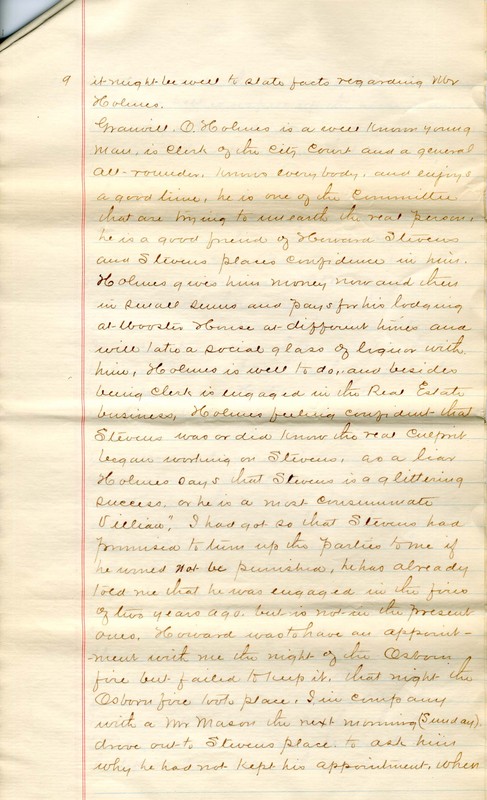 9 it might be well to state facts regarding Mr
Holmes.
Granvill. O. Holmes is a well known young
man, is Clerk of the City Court and a general
all-rounder, knows everybody, and enjoys
a good time, he is one of the Committee
that are trying to unearth the real person,
he is a good friend of Howard Stevens
and Stevens places confidence in him.
Holmes gives him money now and then
in small sums and pays for his lodging
at Wooster House at different times and
will take a social glass of liquor with
him, Holmes is well to do, and besides
being Clerk is engaged in the Real Estate
business, Holmes feeling confident that
Stevens was or did know the real Culprit
began working on Stevens, as a liar
Holmes says that Stevens is a glittering
success. or he is a most consummate
Villian". I had got so that Stevens had
promised to turn up the parties to me if
he wined not be punished, he has already
told me that he was engaged in the fires
of two years ago. but is not in the present
ones, Howard was to have an appoint-
ment with me the night of the Osborn
fire but failed to keep it, that night the
Osborn fire took place, I in company
with a Mr Mason the next morning (Sunday).
drove out to Stevens place, to ask him
why he had not kept his appointment, when